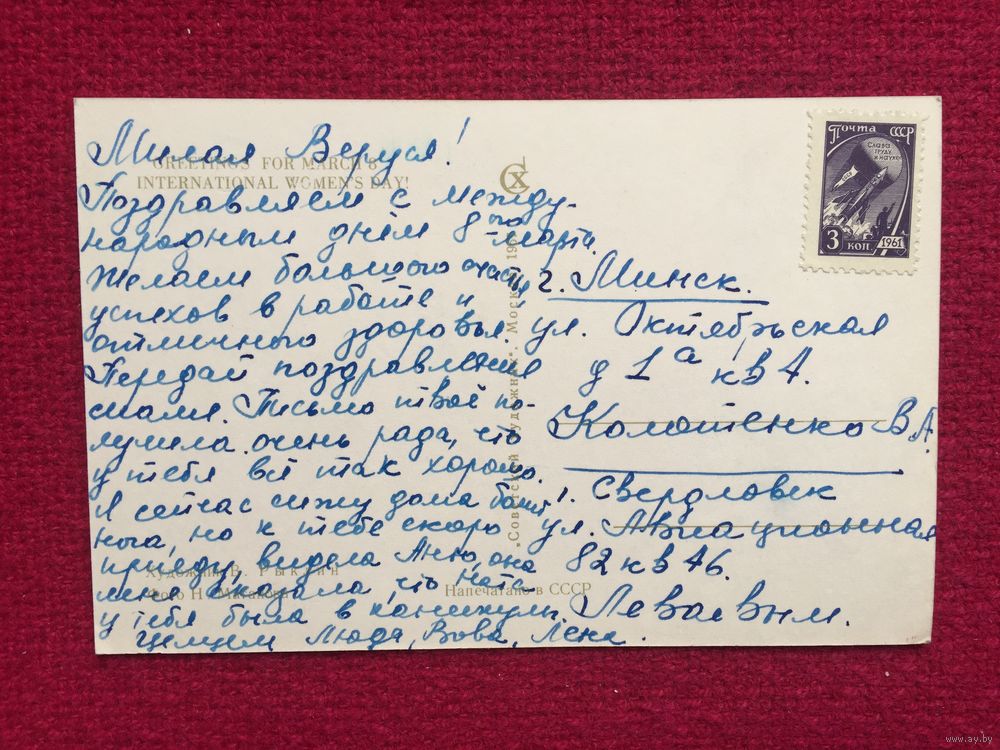 Милая Веруся!
GREETINGS FOR MARCH 8
INTERNATIONAL WOMEN'S DAY!
Поздравляем с между-
народным днём 8ого марта.
Желаем большого счастья
успехов в работе и
отличного здоровья.
Передай поздравление
маме. Письмо твоё по-
лучила очень рада, что
у тебя всё так хорошо.
Я сейчас сижу дома болит
нога, но к тебе скоро
приеду видела Аню, она
мне сказала, что Ната
у тебя была в каникулы.
Целуем Люда, Вова, Лена.
Художник В. Рыклин
Фото Н.
Напечатано в СССР
„Советский художник". Москва
СХ
Почта СССР
Слава
труду
и науке
3 коп. 1961
г. Минск.
ул. Октябрьская
д 1а кв 4.
Колотенко В А.
г. Свердловск
ул. Авиационная
82 кв 46.
Леваевым.
www.ay.by